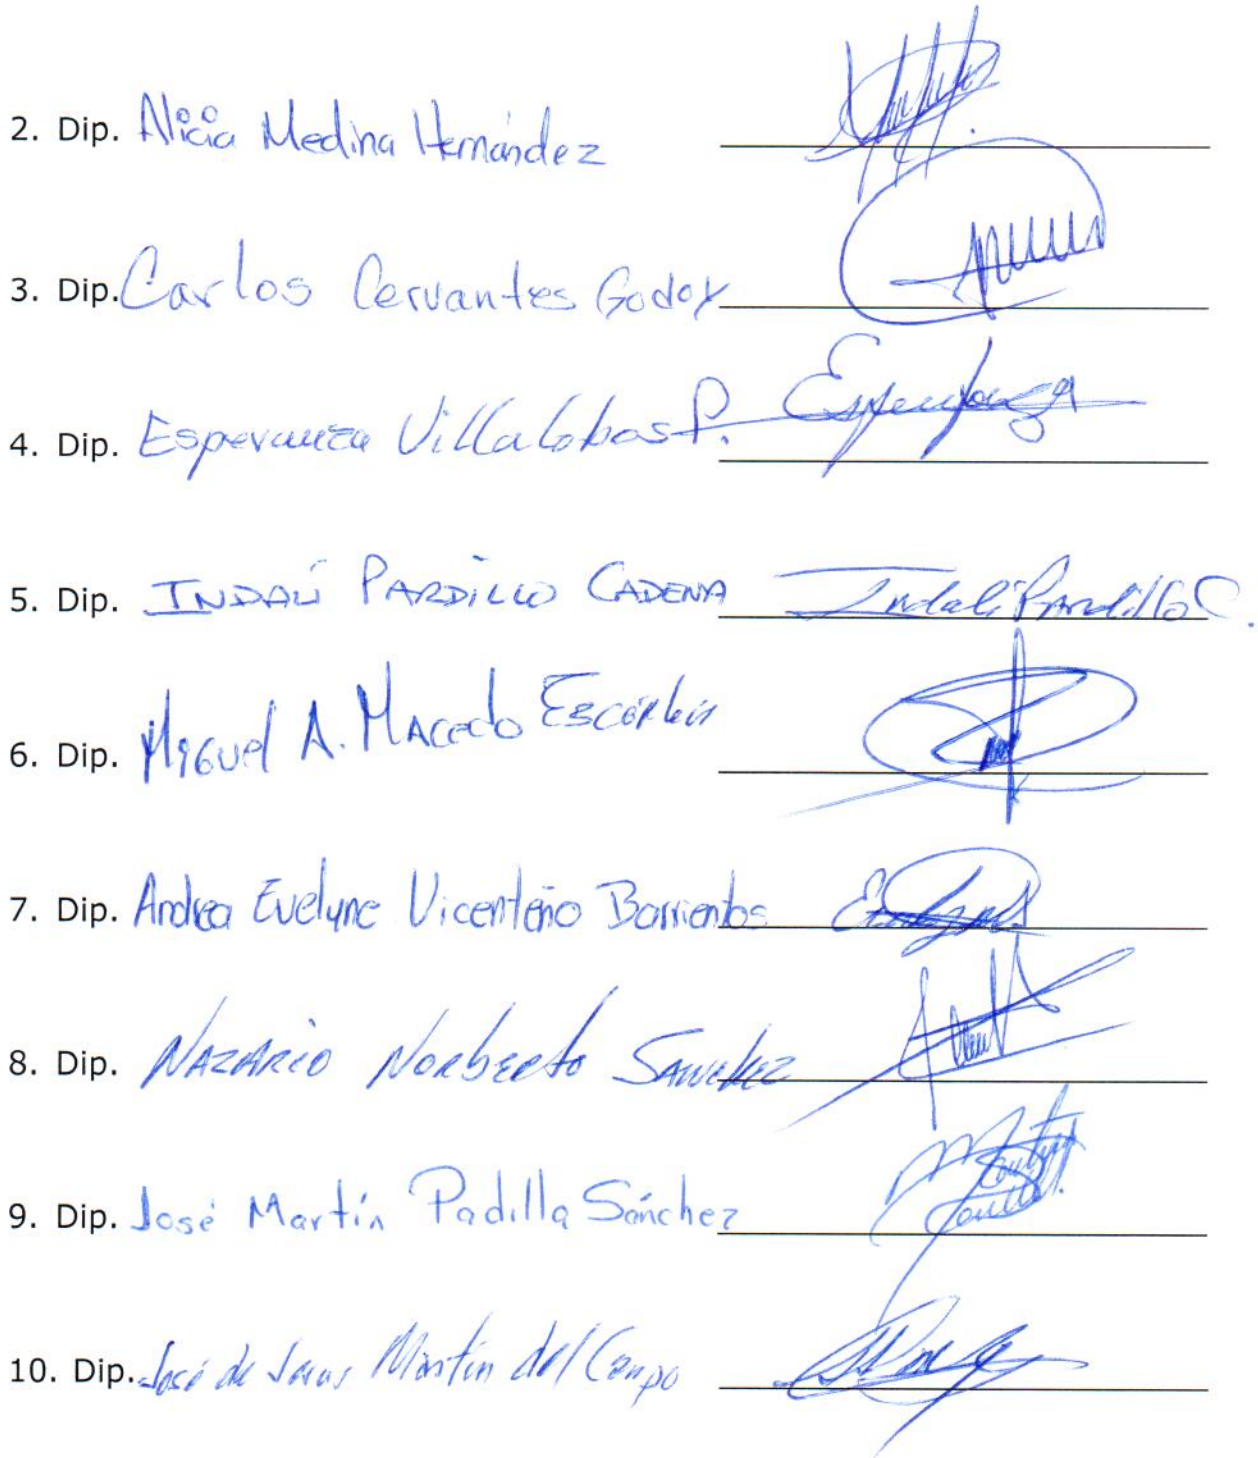 2. Dip. Alicia Medina Hernández
3. Dip. Carlos Cervantes Godoy
4. Dip. Esperanza Villalobos P. Esperanza
5. Dip. INDALÍ PARDILLO CADENA Indali Pardillo C.
6. Dip. Miguel A. Macedo
7. Dip. Andrea Evelyne Vicenteño Barrientos
8. Dip. Nazario Norberto Sánchez
9. Dip. José Martín Padilla Sánchez
10. Dip. José de Jesús Martín del Campo